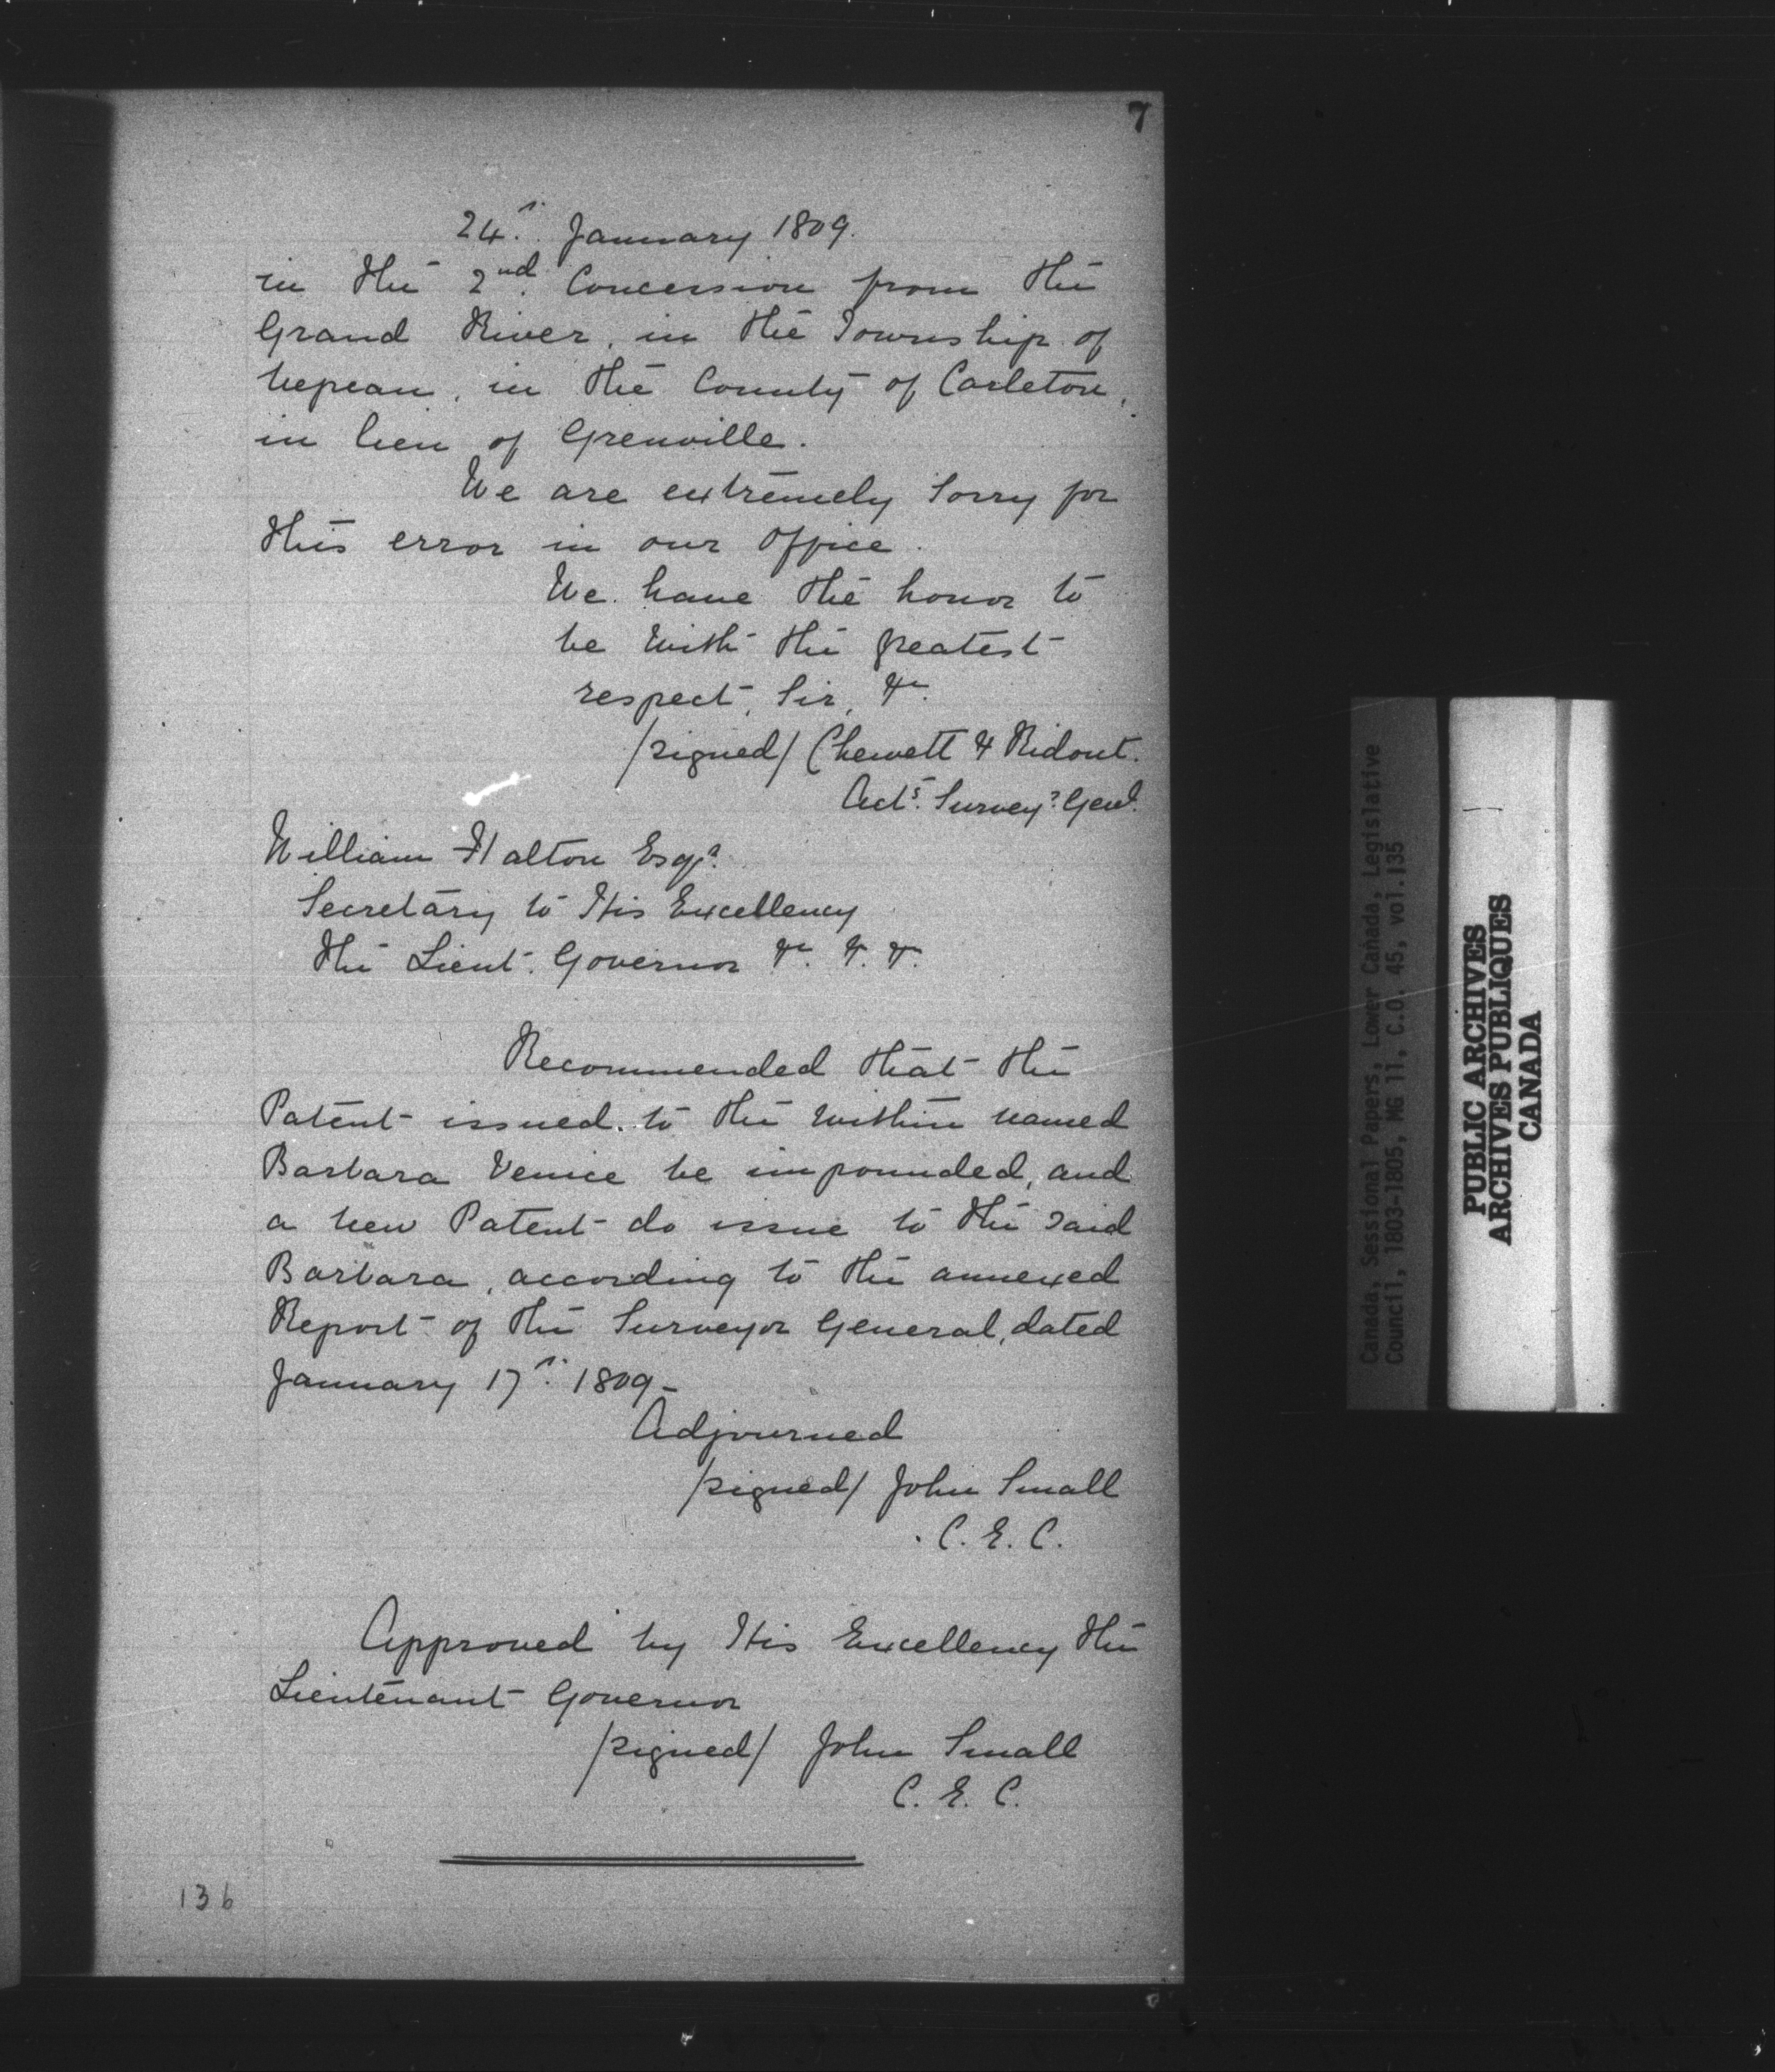 7
24th. January 1809.
in the 2nd. Concession from the
Grand River, in the Township of
Nepean, in the County of Carleton,
in lieu of Grenville.
We are extremely sorry for
this error in our office.
We have the honor to
be with the greatest
respect, Sir, &c.
/signed/ Chewett & Ridout.
Acts. Surveyr. Genl.
William Halton Esqr.
Secretary to His Excellency
the Lieut. Governor &c. &c. &c.
Recommended that the
Patent issued to the within named
Barbara Venice be impounded, and
a new Patent do issue to the said
Barbara, according to the annexed
Report of the Surveyor General, dated
January 17th. 1809_
Adjourned
/signed/ John Small
C. E. C.
Approved by His Excellency the
Lieutenant Governor
/signed/ John Small
C. E. C.
136
Canada, Sessional Papers, Lower Canada, Legislative
Council, 1803-1805, MG 11, C.O. 45, vol.135
PUBLIC ARCHIVES
ARCHIVES PUBLIQUES
CANADA